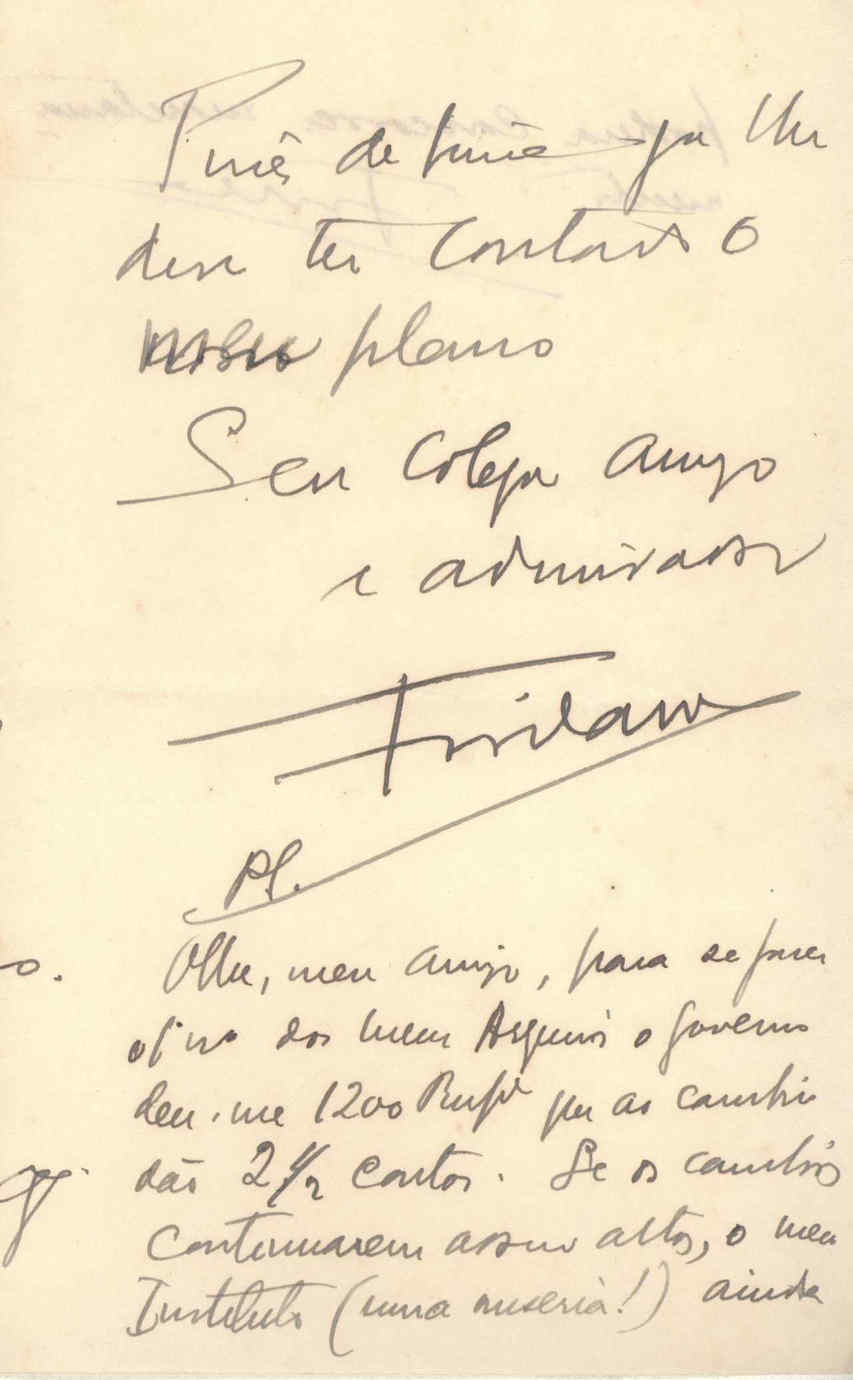 de que lhe
deve ter contado o
meu plano
Seu colega amigo
e admirador
Froilano
PS.
Olhe, meu amigo, para se fazer
o dos meus Arquivos o governo
deu-me 1200 Rupi que ao cambio
dão 2 1/2 contos. Se os cambios
continuarem assim altos, o meu
Instituto (uma miseria!) ainda